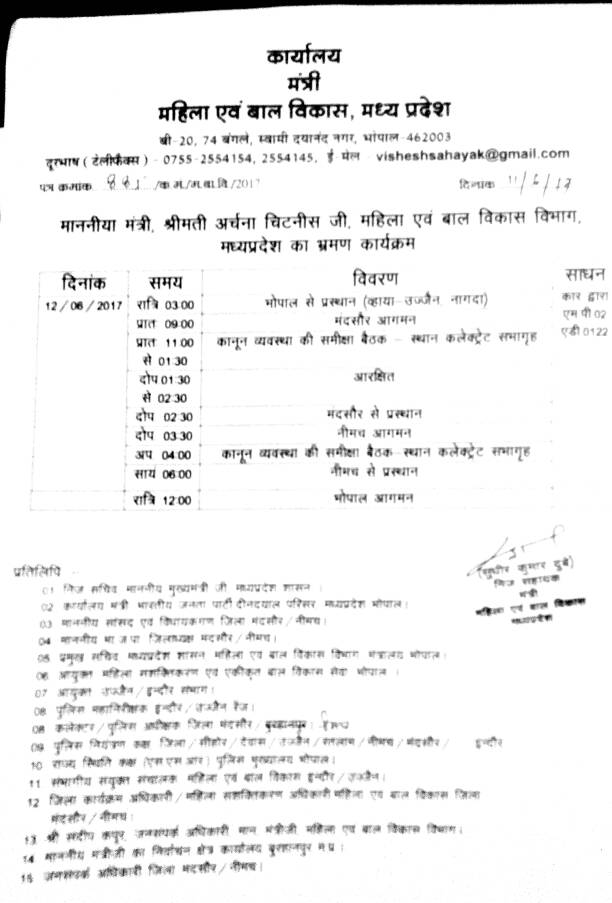 कार्यालय
मंत्री
महिला एवं बाल विकास, मध्य प्रदेश
बी-20, 74 बंगले, स्वामी दयानंद नगर, भोपाल-462003
दूरभाष (टेलीफैक्स) - 0755-2554154, 2554145, ई-मेल - visheshsahayak@gmail.com
पत्र कमांक /क.म./म.बा.वि./2017 दिनांक 11/6/17
माननीया मंत्री, श्रीमती अर्चना चिटनीस जी, महिला एवं बाल विकास विभाग,
मध्यप्रदेश का भ्रमण कार्यक्रम
दिनांक समय विवरण साधन
12/06/2017 रात्रि 03:00 भोपाल से प्रस्थान (व्हाया-उज्जैन, नागदा) कार द्वारा
प्रात 09:00 मंदसौर आगमन एम पी 02
प्रात 11:00 कानून व्यवस्था की समीक्षा बैठक – स्थान कलेक्ट्रेट सभागृह एडी 0122
से 01:30
दोप 01:30 आरक्षित
से 02:30
दोप 02:30 मंदसौर से प्रस्थान
दोप 03:30 नीमच आगमन
अप 04:00 कानून व्यवस्था की समीक्षा बैठक-स्थान कलेक्ट्रेट सभागृह
सायं 06:00 नीमच से प्रस्थान
रात्रि 12:00 भोपाल आगमन
(सुधीर कुमार दुबे)
निज सहायक
मंत्री
महिला एवं बाल विकास
मध्यप्रदेश
प्रतिलिपि :-
01 निज सचिव माननीय मुख्यमंत्री जी मध्यप्रदेश शासन ।
02 कार्यालय मंत्री भारतीय जनता पार्टी दीनदयाल परिसर मध्यप्रदेश भोपाल।
03 माननीय सांसद एवं विधायकगण जिला मंदसौर/नीमच।
04 माननीय भा.ज.पा. जिलाध्यक्ष मंदसौर/नीमच।
05 प्रमुख सचिव मध्यप्रदेश शासन महिला एवं बाल विकास विभाग मंत्रालय भोपाल।
06 आयुक्त महिला सशक्तिकरण एवं एकीकृत बाल विकास सेवा भोपाल ।
07 आयुक्त उज्जैन/इन्दौर संभाग।
08 पुलिस महानिरीक्षक इन्दौर/उज्जैन रेंज।
08 कलेक्टर/पुलिस अधीक्षक जिला मंदसौर/बुरहानपुर।
09 पुलिस नियंत्रण कक्ष जिला/सीहोर/देवास/उज्जैन/रतलाम/नीमच/मंदसौर/ इन्दौर
10 राज्य स्थिति कक्ष (एस.एस.आर) पुलिस मुख्यालय भोपाल।
11 संभागीय संयुक्त संचालक महिला एवं बाल विकास इन्दौर/उज्जैन।
12 जिला कार्यक्रम अधिकारी/महिला सशक्तिकरण अधिकारी महिला एवं बाल विकास जिला
मंदसौर/नीमच।
13 श्री संदीप कपूर, जनसंपर्क अधिकारी मान. मंत्रीजी, महिला एवं बाल विकास विभाग।
14 माननीय मंत्रीजी का निर्वाचन क्षेत्र कार्यालय बुरहानपुर म.प्र.।
15 जनसंपर्क अधिकारी जिला मंदसौर/नीमच।